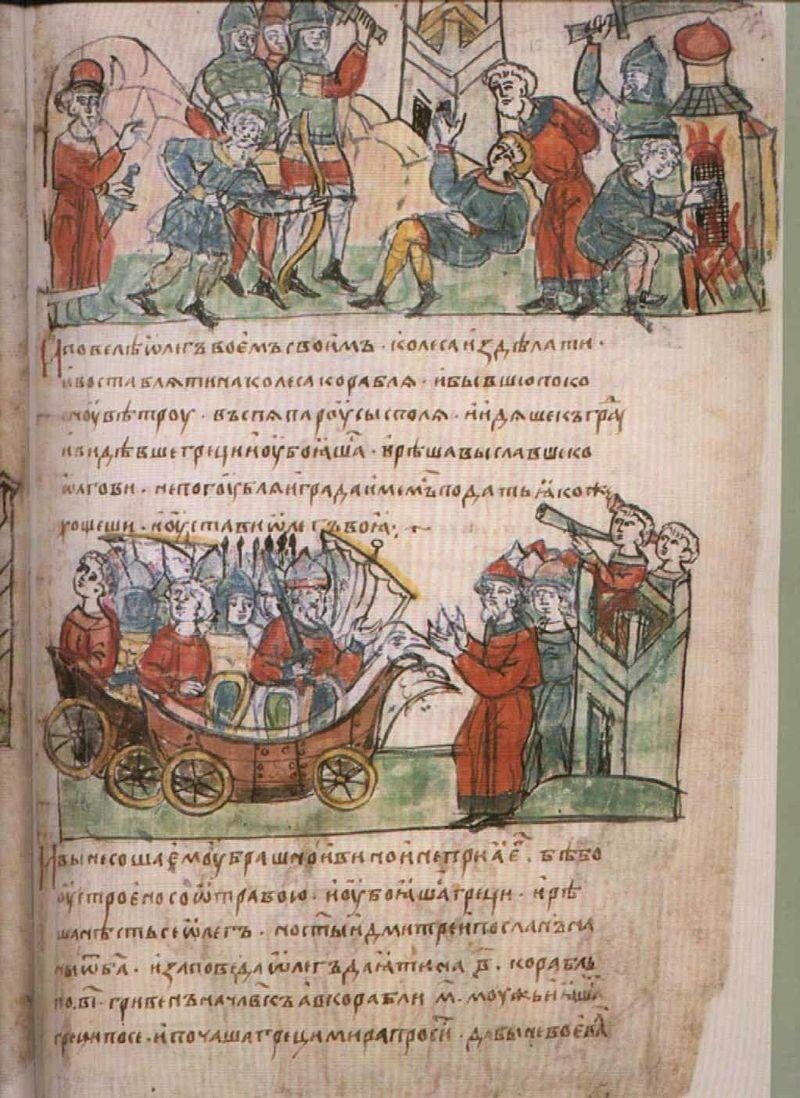 И повелѣ ѡлегъ воемъ своимъ · колеса издѣлати ·
и воставляти на колеса корабля · и бывшю поко
сноу вѣтроу · въспя пароусы с поля · и идяше къ градоу
и видѣвше греци и оубоꙗшасѧ · и рѣша выславше ко
ѡлгови · не погоублѧи града имемъ подать ꙗкоже
хощеши · и оустави ѡлегъ воꙗ ·
И вынесоша емоу брашно и вино и не приꙗ е҃г · бѣ бо
оустроено со ѿравою · и оубоꙗшасѧ греци · и рѣ
ша нѣсть се ѡлегъ · но ст҃ыи дмитреи посланъ на
ны ѿ ба҃ · и заповѣда ѡлегъ даꙗти на в҃ · корабль
по · в҃і · гривенъ на чл҃вкъ а в корабли м҃ · моужь и ꙗшасѧ
греци по се · и почаша греци мира просити · дабы не воевал